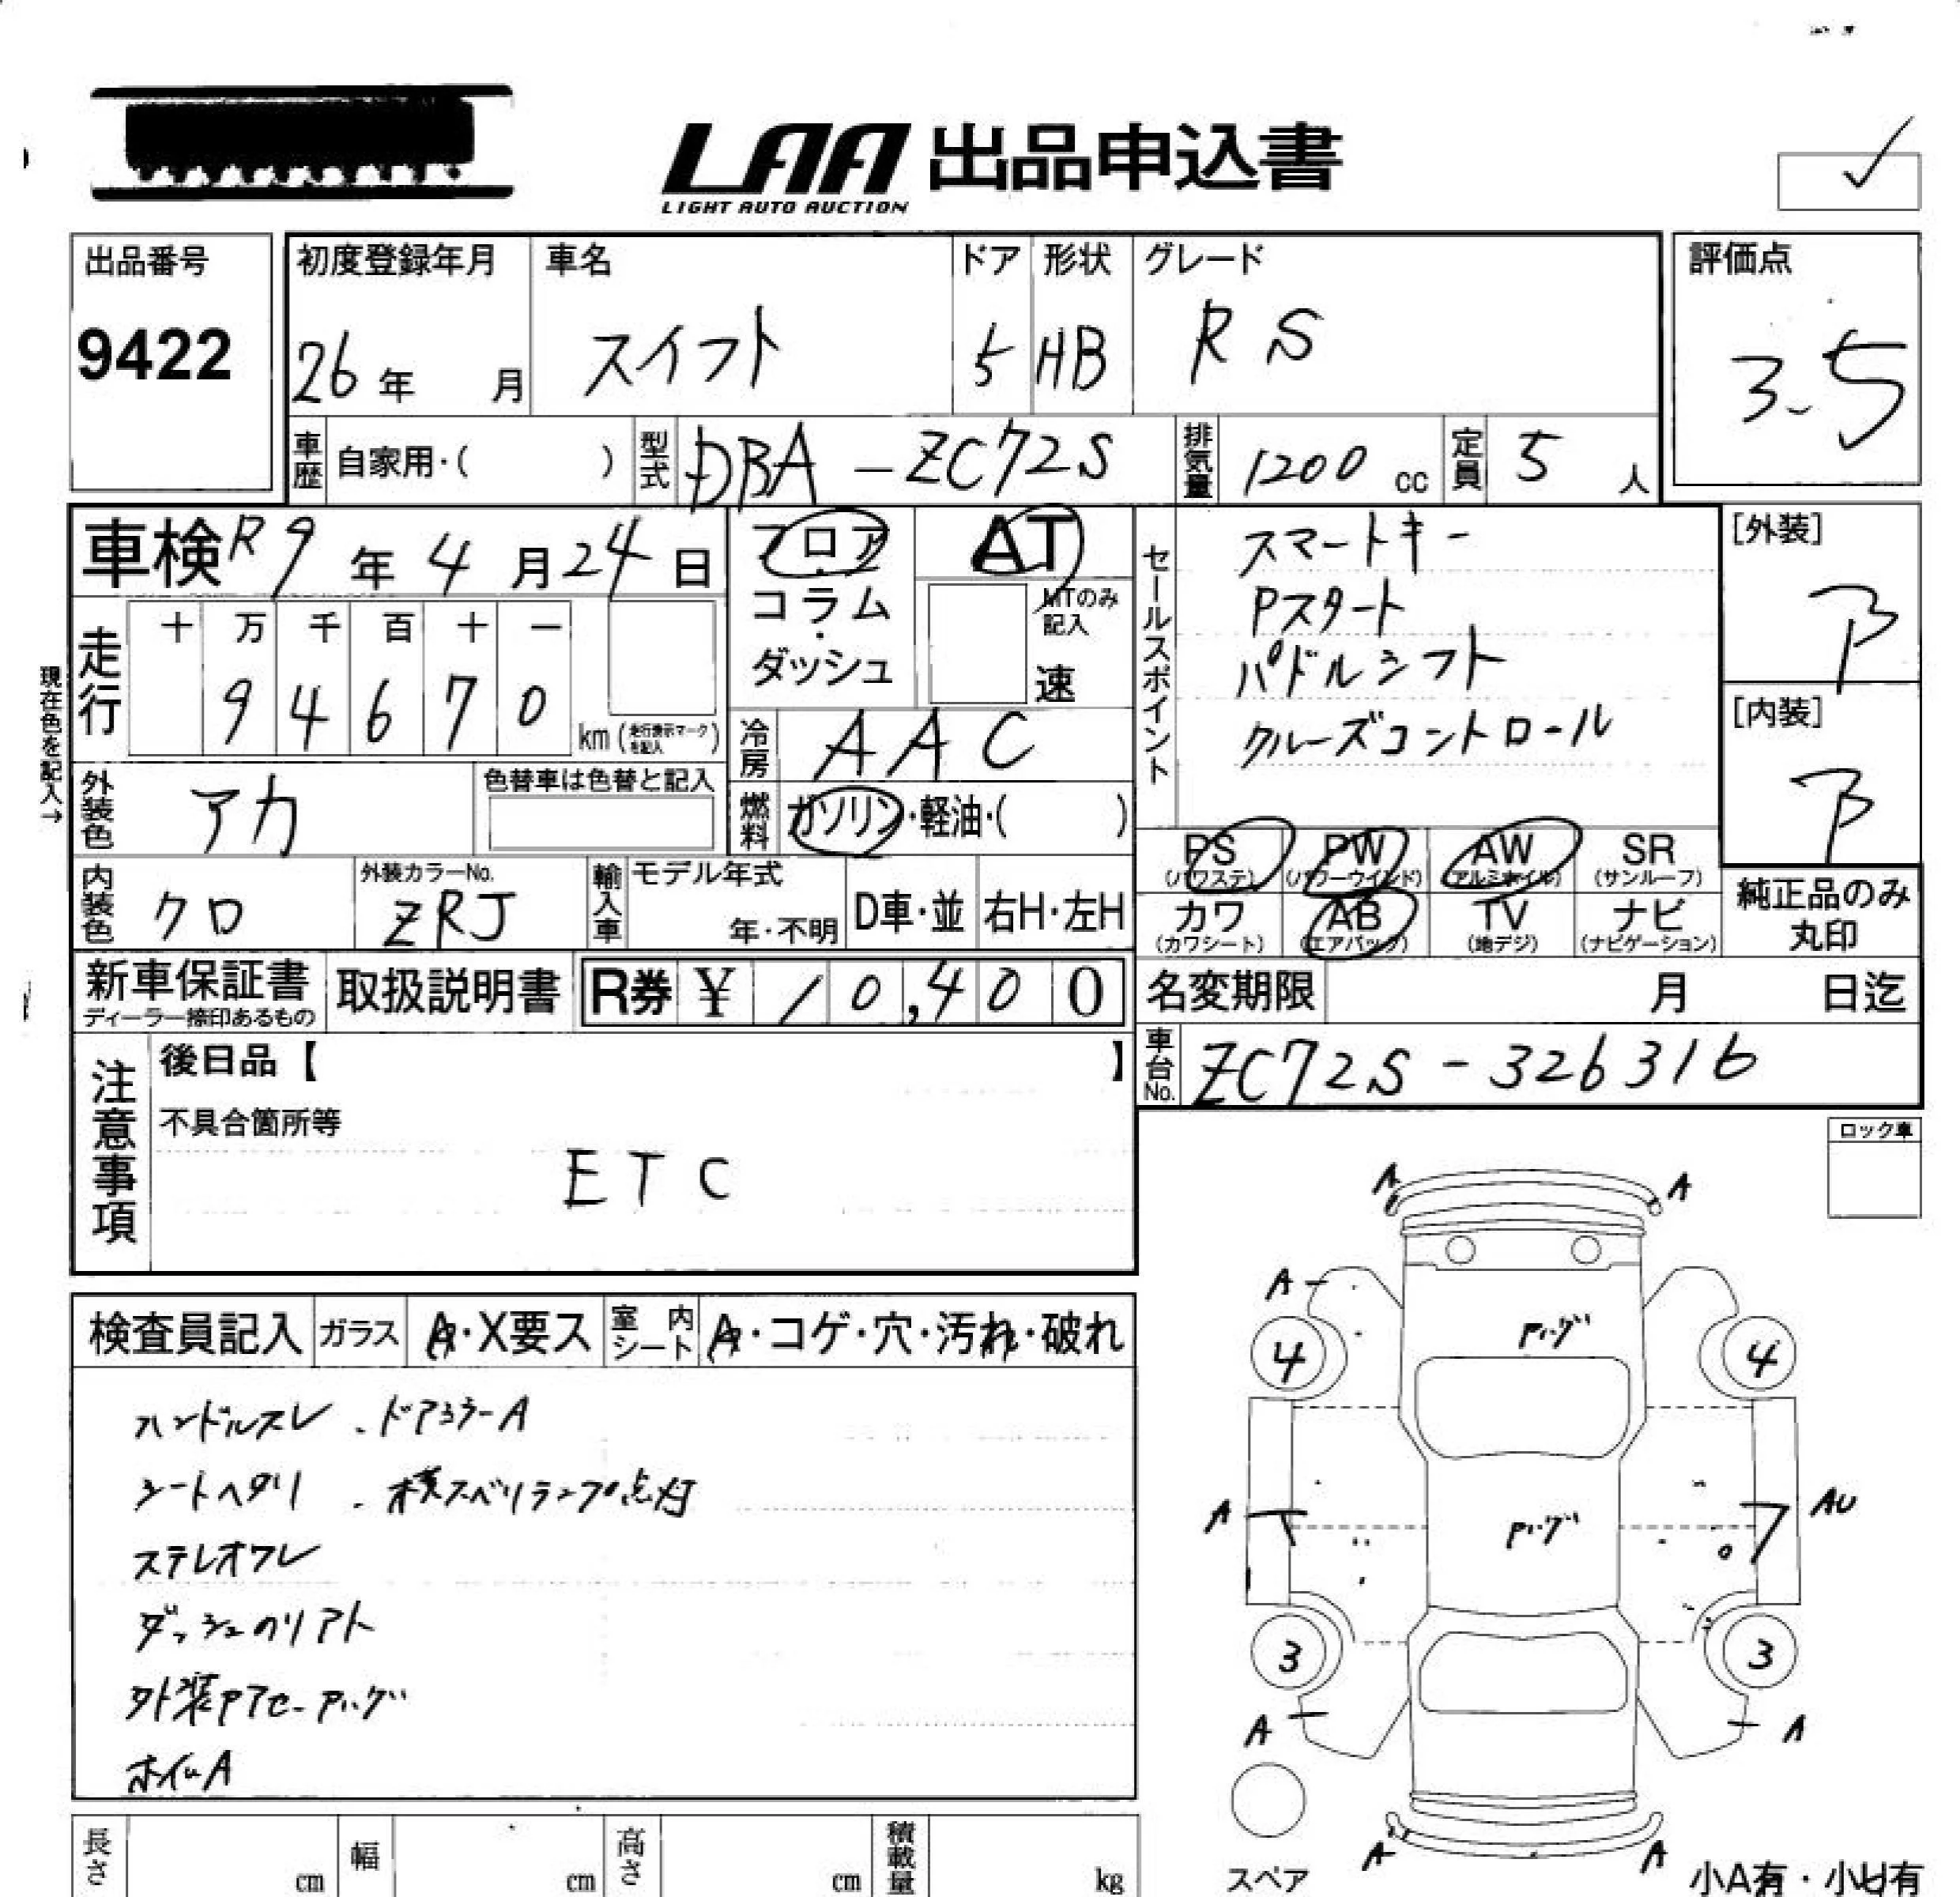 LAA 出品申込書
LIGHT AUTO AUCTION
出品番号
9422
初度登録年月
26年 月
車名
スイフト
ドア
5
形状
HB
グレード
RS
評価点
3.5
車歴 自家用・( )
型式 DBA-ZC72S
排気量 1200 cc
定員 5 人
車検 R9年4月24日
フロア・コラム・ダッシュ
AT
MTのみ記入
速
セールスポイント
スマートキー
Pスタート
パドルシフト
クルーズコントロール
[外装]
[内装]
現在色を記入→
走行
十 万 千 百 十 一
9 4 6 7 0 km (走行表示マークを記入)
冷房 AAC
外装色 アカ
色替車は色替と記入
燃料 ガソリン・軽油・( )
PS (パワステ)
PW (パワーウインド)
AW (アルミホイル)
SR (サンルーフ)
カワ (カワシート)
AB (エアバック)
TV (地デジ)
ナビ (ナビゲーション)
純正品のみ丸印
内装色 クロ
外装カラーNo. ZRJ
輸入車 モデル年式 年・不明
D車・並
右H・左H
新車保証書
ディーラー捺印あるもの
取扱説明書
R券 ¥ 10,400
名変期限 月 日迄
車台No. ZC72S-326316
注意事項
後日品【 】
不具合箇所等
ETC
ロック車
検査員記入
ガラス A・X要ス
室内シート A・コゲ・穴・汚れ・破れ
ハンドルスレ . ドアミラーA
シートヘタリ . 横スベリランプ点灯
ステレオワレ
ダッシュのリアト
ホイルA
A A
A
4 4
A AU
3 3
A A
A A
スペア
小A有・小U有
長さ cm
幅 cm
高さ cm
積載量 kg